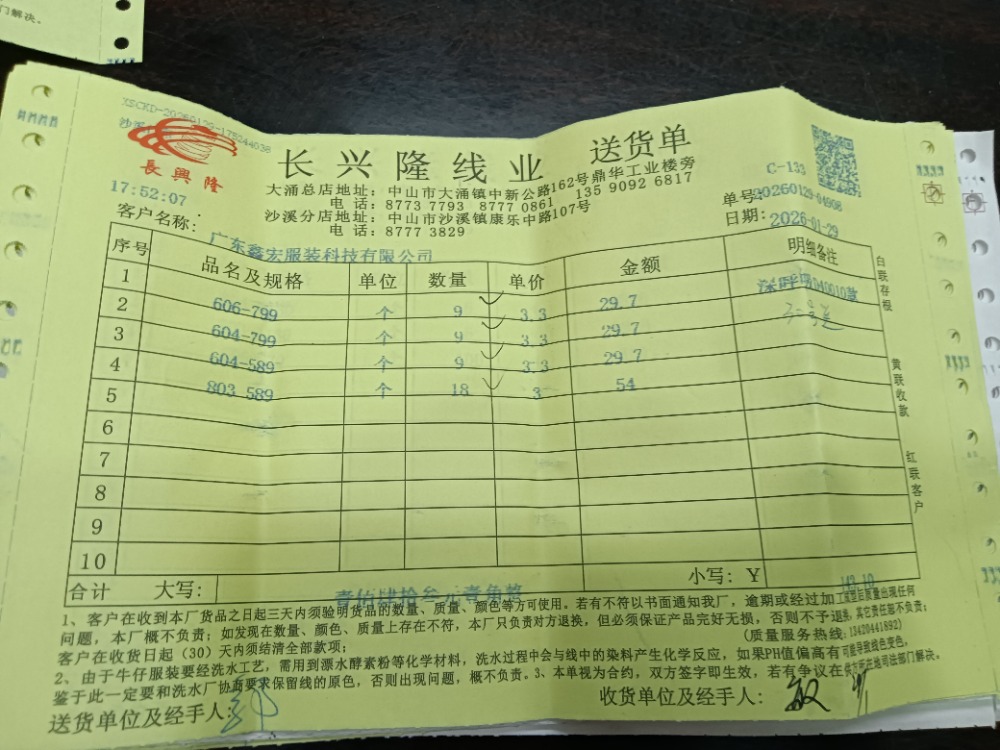 门解决。
XSCKD-20260129-175244038
沙溪
長興隆
长兴隆线业 送货单
17:52:07
大涌总店地址：中山市大涌镇中新公路162号鼎华工业楼旁
电话：8773 7793 8777 0861 135 9092 6817
沙溪分店地址：中山市沙溪镇康乐中路107号
电话：8777 3829
C-133
单号20260129-04908
日期：2026-01-29
客户名称：广东鑫宏服装科技有限公司
序号 品名及规格 单位 数量 单价 金额 明细备注
1 606-799 个 9 3.3 29.7
2 604-799 个 9 3.3 29.7
3 604-589 个 9 3.3 29.7
4 803-589 个 18 3 54
5
6
7
8
9
10
合计 大写：壹佰肆拾叁元壹角整 小写：Y 143.10
白联存根
黄联收款
红联客户
1、客户在收到本厂货品之日起三天内须验明货品的数量、质量、颜色等方可使用。若有不符以书面通知我厂，逾期或经过加工
问题，本厂概不负责；如发现在数量、颜色、质量上存在不符，本厂只负责对方退换，但必须保证产品完好无损，否则不予退换，其它责任恕不负责；
客户在收货日起（30）天内须结清全部款项； （质量服务热线：13420441892）
2、由于牛仔服装要经洗水工艺，需用到漂水酵素粉等化学材料，洗水过程中会与线中的染料产生化学反应，如果PH值偏高有可能导致线色变色，
鉴于此一定要和洗水厂协商要求保留线的原色，否则出现问题，概不负责。3、本单视为合约，双方签字即生效，若有争议在供方所在地司法部门解决。
送货单位及经手人： 收货单位及经手人：